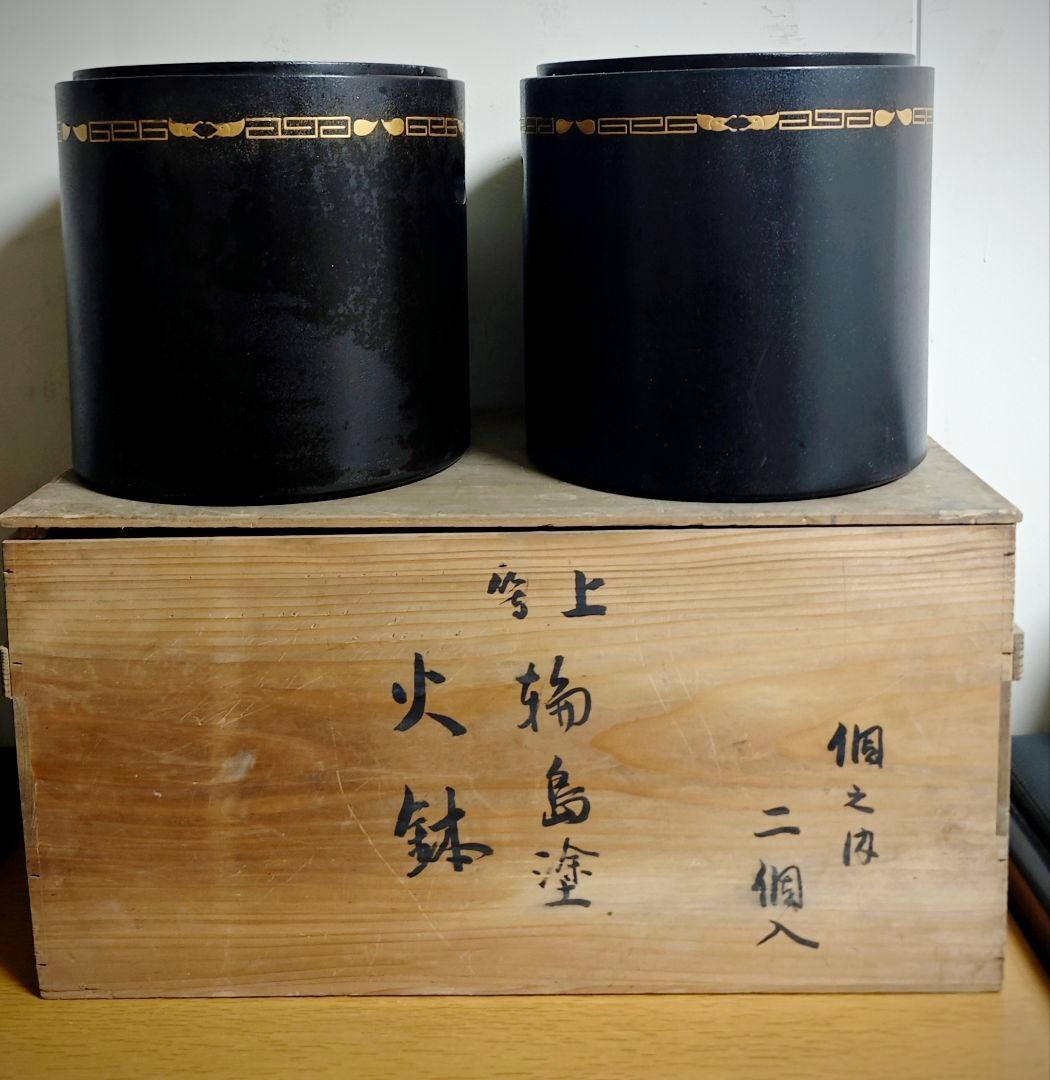 個之内
二個入
上等
輪島塗
火鉢